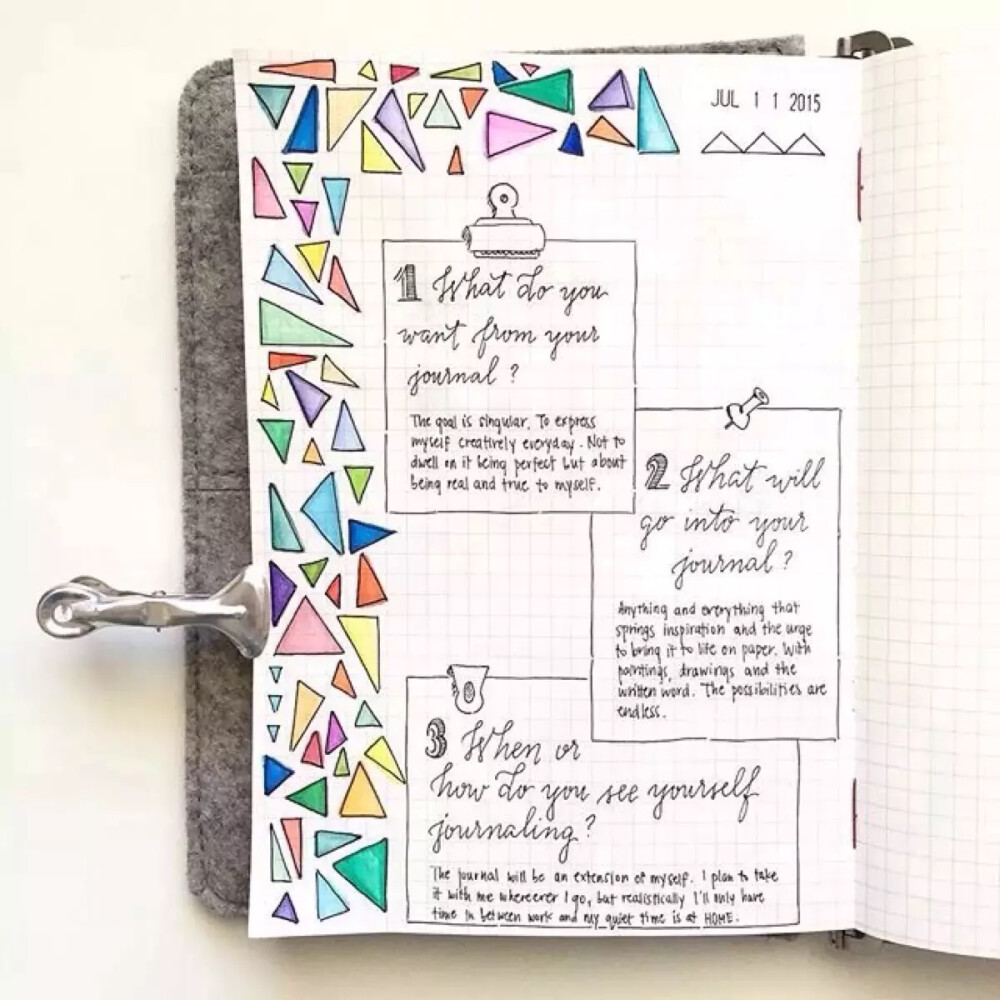 JUL 11 2015
1 What do you
want from your
journal?
The goal is singular. To express
myself creatively everyday. Not to
dwell on it being perfect but about
being real and true to myself.
2 What will
go into your
journal?
Anything and everything that
springs inspiration and the urge
to bring it to life on paper. With
paintings, drawings and the
written word. The possibilities are
endless.
3 When or
how do you see yourself
journaling?
The journal will be an extension of myself. I plan to take
it with me whereever I go, but realistically I'll only have
time in between work and my quiet time is at HOME.